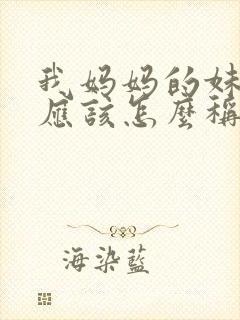 我妈妈的妹
应该怎麼稱
海染藍